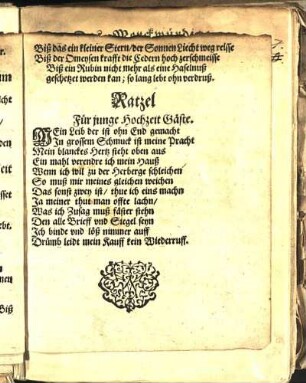 Biß das ein kleiner Stern / der Sonnen Liecht weg reisse
Biß der Omeysen krafft die Cedern hoch zerschmeisse
Biß ein Rubin nicht mehr als eine Haselnuß
geschetzet werden kan; so lang lebt ohn verdruß.
Ratzel
Für junge Hochzeit Gäste.
MEin Leib der ist ohn End gemacht
In grossem Schmuck ist meine Pracht
Mein blanckes Hertz steht oben aus
Ein mahl verendre ich mein Hauß
Wenn ich wil zu der Herberge schleichen
So muß mir meines gleichen weichen
Das sonst zwey ist / thue ich eins machn
Ja meiner thut man offte lachn /
Was ich Zusag muß fäster stehn
Den alle Brieff vnd Siegel seyn
Ich binde vnd löß nimmer auff
Drümb leidt mein Kauff kein Wiederruff.